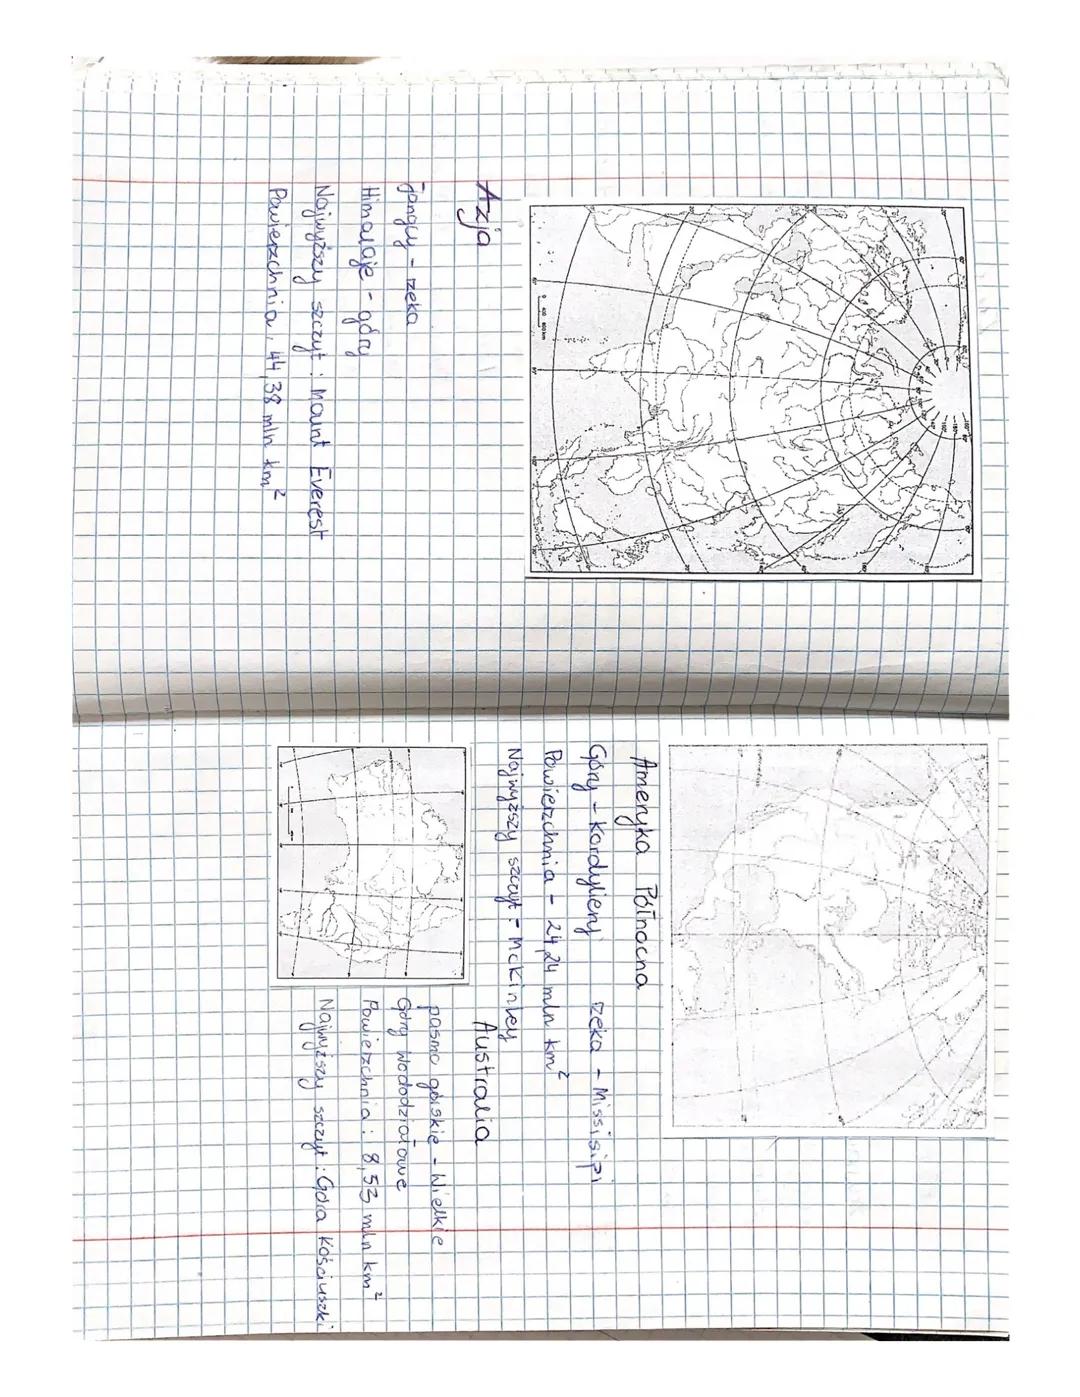 Azja
Jangcy - rzeka
Himalaje - góry
Najwyższy szczyt : Mount Everest
Powierzchnia, 44,38 mln km²
Ameryka Północna
Góry - Kordyliery rzeka - Missisipi
Powierzchnia - 24,24 mln km²
Najwyższy szczyt - McKinley
Australia
pasmo górskie - Wielkie
Góry Wododziałowe
Powierzchnia : 8,53 mln km²
Najwyższy szczyt : Góra Kościuszki